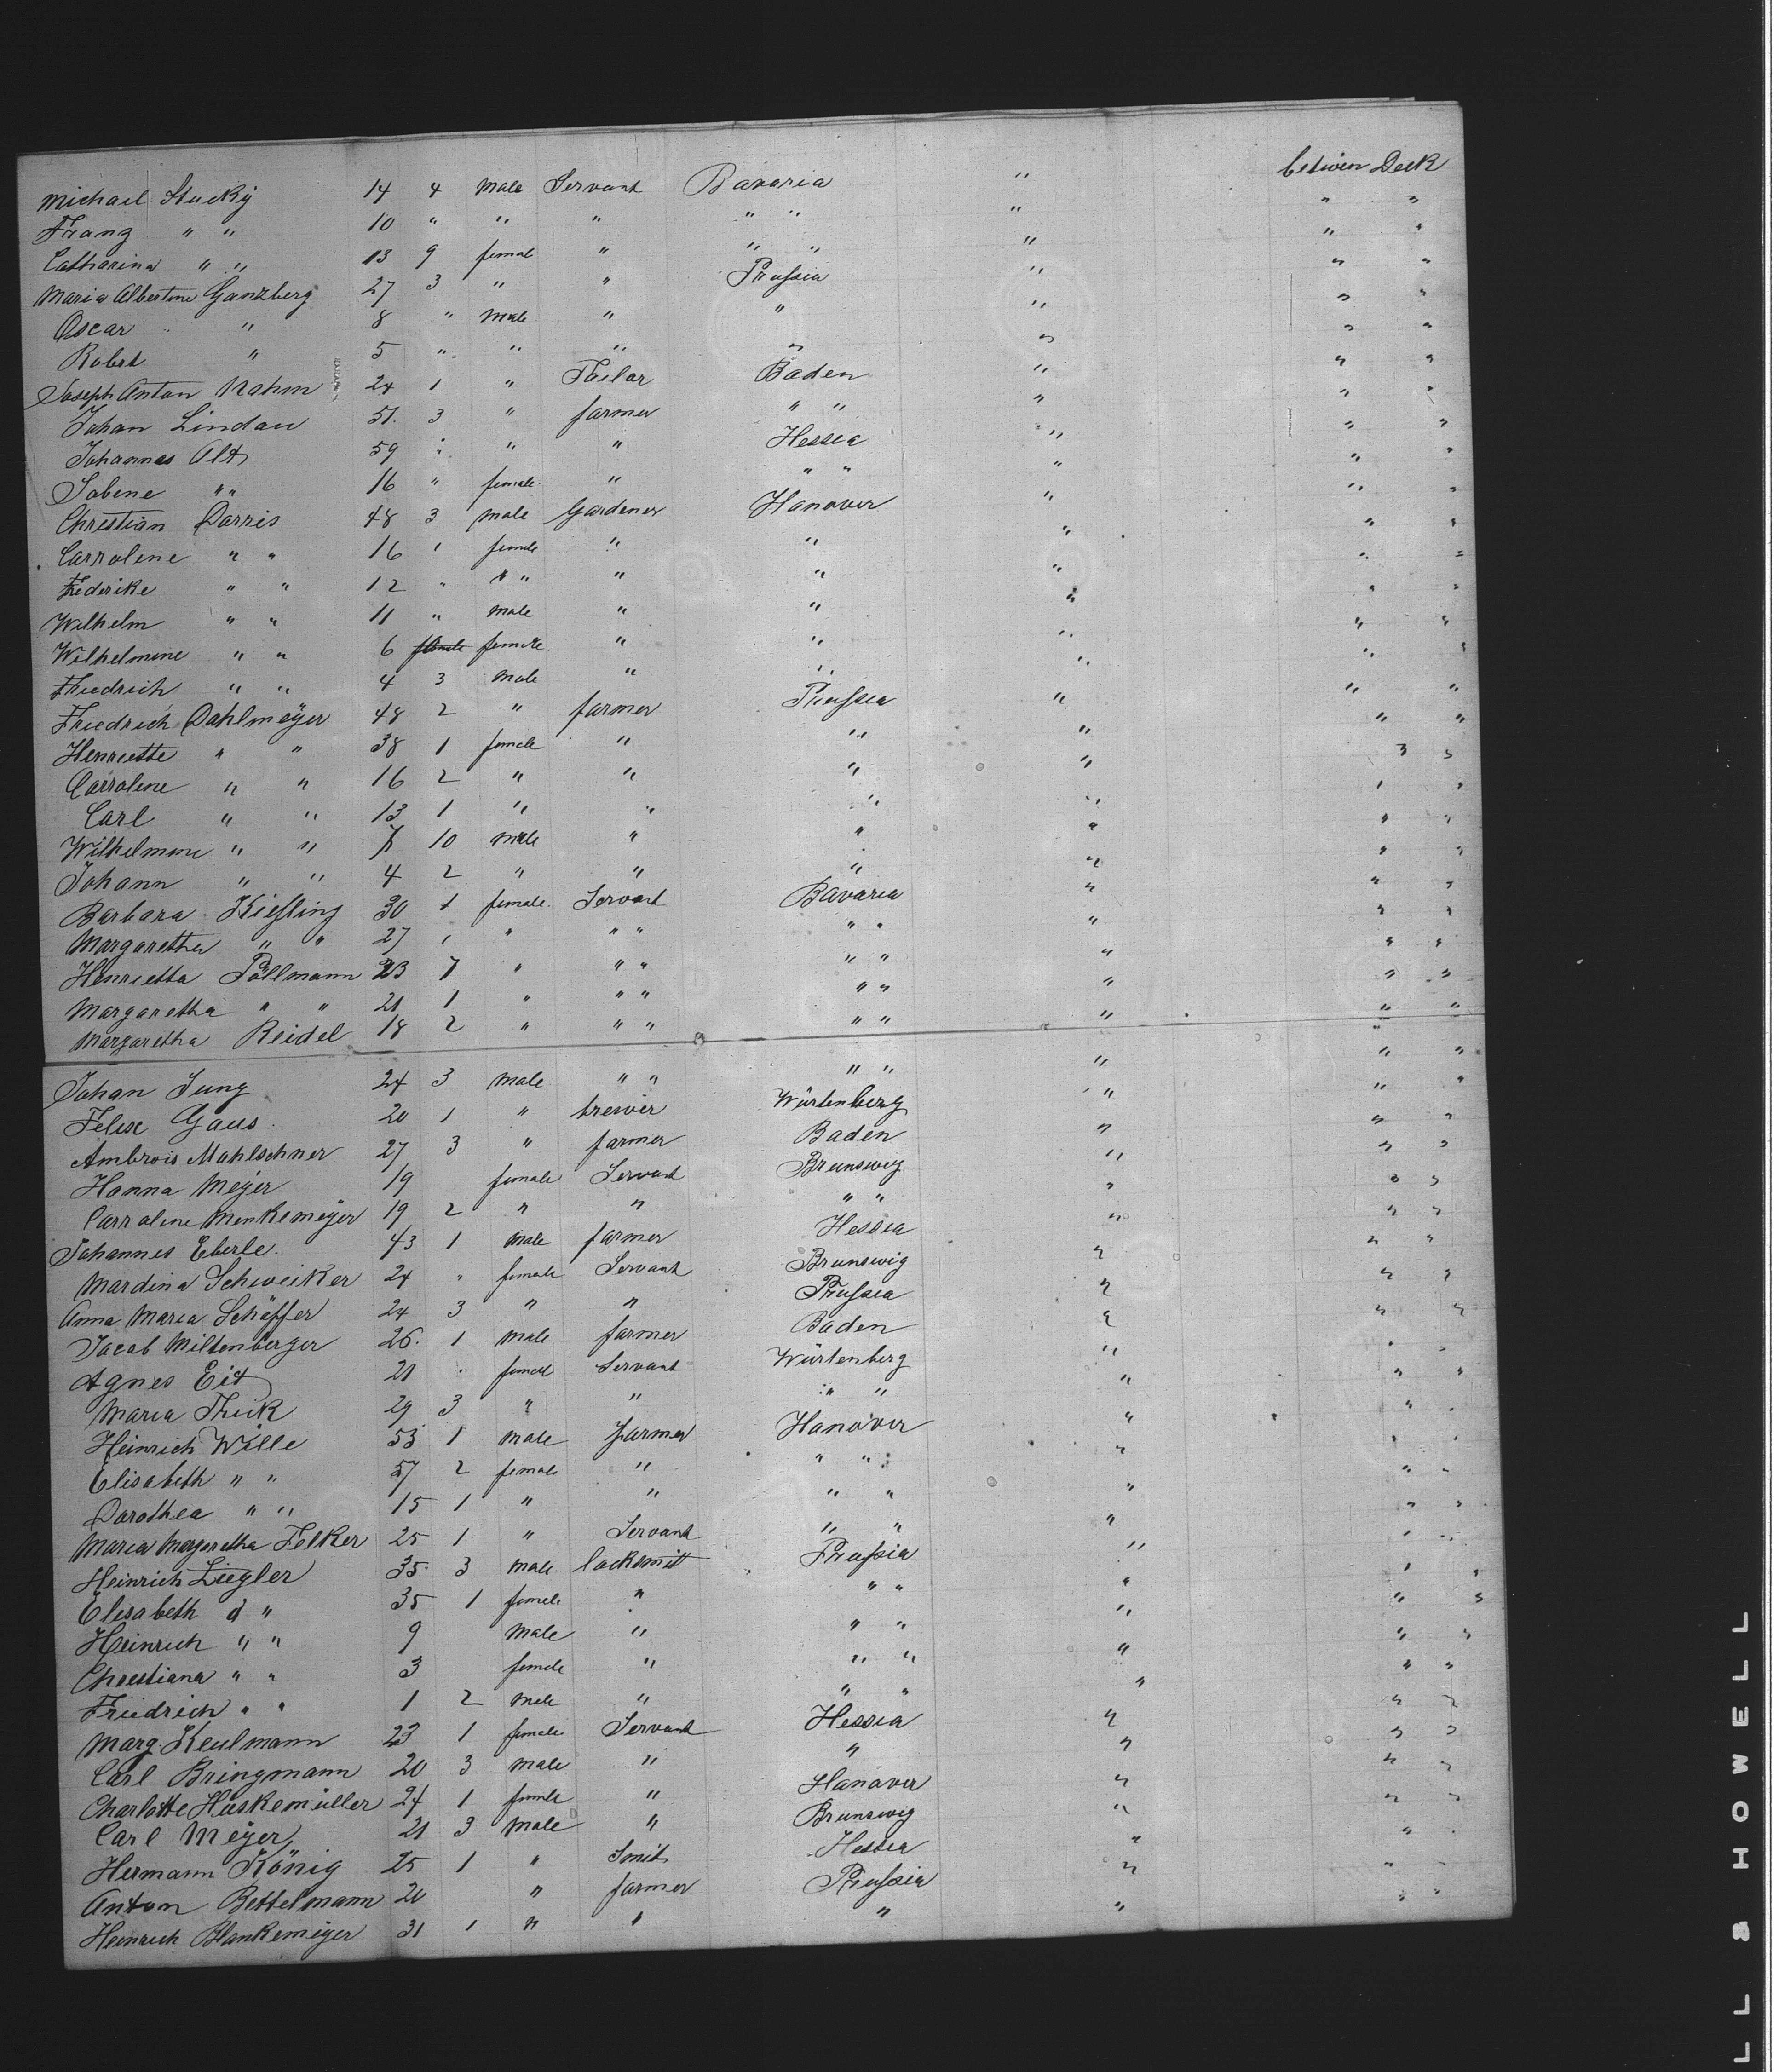 between Deck
Michael Stucky 14 4 male Servant Bavaria " " "
Franz " " 10 " " " " " " " "
Catharina " " 13 9 female " " " " " "
Maria Albertine Ganzberg 27 3 " " Prussia " " "
Oscar " 8 " male " " " " "
Robert " 5 " " " " " " "
Joseph Anton Rahm 24 1 " Tailor Baden " " "
Johan Lindau 51. 3 " farmer " " " " "
Johannes Alt 59 " " " Hessia " " "
Sabene " " 16 " female " " " " " "
Christian Darris 48 3 male Gardener Hanover " " "
Carrolene " " 16 1 female " " " " "
Frederike " " 12 " " " " " " " "
Wilhelm " " 11 " male " " " " "
Wilhelmine " " 6 female " " " " "
Friedrich " " 4 3 male " " " " "
Friedrich Dahlmeÿer 48 2 " farmer Prussia " " "
Henriette " " 38 1 female " " " " "
Carrolene " " 16 2 " " " " " "
Carl " " 13 1 " " " " " "
Wilhelmine " " 7 10 male " " " " "
Johann " " 4 2 " " " " " "
Barbara Kiessling 30 1 female Servant Bavaria " " "
Margaretha " " 27 1 " " " " " " " "
Henrietta Pöllmann 23 7 " " " " " " " "
Margaretha " " 21 1 " " " " " " " "
Margaretha Reidel 18 2 " " " " " " " "
Johan Jung 24 3 male " " " " " " "
Felix Gaus 20 1 " brewer Würtenberg " " "
Ambrois Mahlschner 27 3 " farmer Baden " " "
Hanna Meÿer 19 female Servant Brunsweg " " "
Carrolene Menkemeÿer 19 2 " " " " " " "
Johannes Eberle 43 1 male farmer Hessia " " "
Mardina Schweiker 24 " female Servant Brunswig " " "
Anna Maria Schäffer 24 3 " " Prussia " " "
Jacob Miltenberger 26 1 male farmer Baden " " "
Agnes Eit 21 . female Servant Würtenberg " " "
Maria Frick 29 3 " " " " " " "
Heinrich Wille 53 1 male farmer Hanover " " "
Elisabeth " " 57 2 female " " " " " "
Dorothea " " 15 1 " " " " " " "
Maria Margaretha Felker 25 1 " Servant " " " " "
Heinrich Ziegler 35 3 male locksmit Prussia " " "
Elisabeth " 35 1 female " " " " " "
Heinrich " " 9 male " " " " " "
Chrestiana " " 3 female " " " " " "
Friedrich " " 1 2 male " " " " " "
Marg. Keulmann 23 1 female Servant Hessia " " "
Carl Bringmann 20 3 male " " " " "
Charlotte Huskemüller 24 1 female " Hanover " " "
Carl Meÿer 21 3 male " Brunswig " " "
Hermann König 25 1 " Smit Hessia " " "
Anton Bettelmann 20 " farmer Prussia " " "
Heinrich Blankemeyer 31 1 " " " " " "
LL & HOWELL